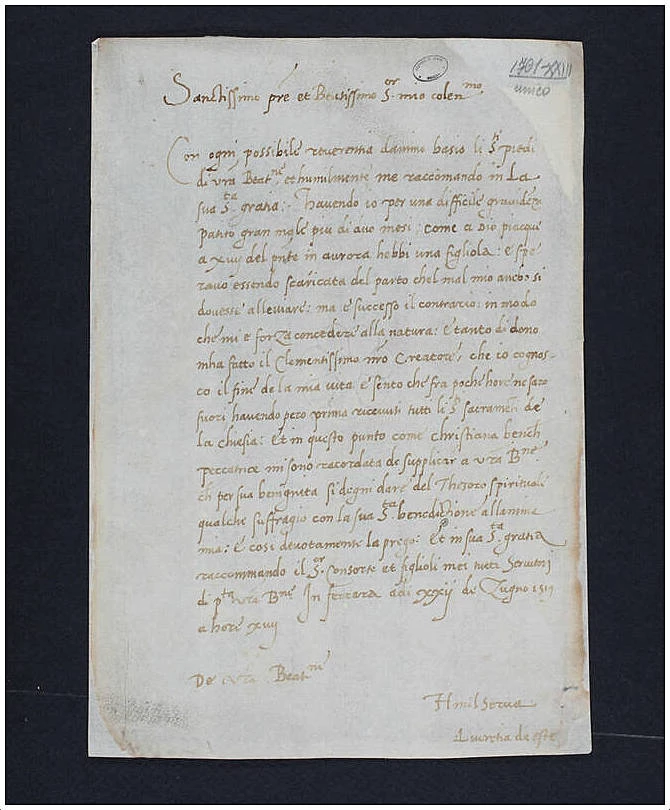 1701-XXIII
unico
Sanctissimo pre et Beatissimo Sor. mio colenmo
Con ogni possibile reverentia d animo basio li Sti piedi
di vra Beatne, et humilmente me raccomando in La
sua Sta. gratia: Havendo io per una difficile gravideza
patito gran male piu di duo mesi: come a Dio piacque
a xiiij del pnte in aurora hebbi una figliola: e spe
ravo essendo scaricata del parto chel mal mio ancho si
dovesse alleviare: ma e successo il contrario: in modo
che mi e forza concedere alla natura: E tanto di dono
mha fatto il Clementissimo nro Creatore, che io cognos-
co il fine de la mia vita e sento che fra poche hore ne saro
fuori havendo pero prima ricevuti tutti li Sti sacramenti de
la chiesia: Et in questo punto come christiana bench
peccatrice mi sono racordata de supplicar a vra Bne
ch per sua benignita si degni dare del Thesoro spirituali
qualche suffragio con la sua Sta benedictione all anima
mia: E cosi devotamente la prego: Et in sua Sta gratia
raccommando il Sor Consorte et figlioli mei tutti servitori
di pta vra Bne In ferrara adi xxij de Zugno 1519
a hore xvij
De vra Beatne
Humil serva
Lucretia de este